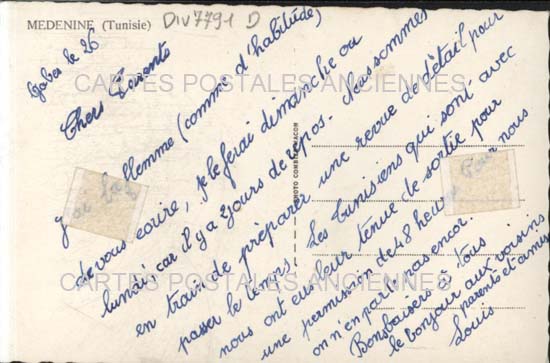 MEDENINE (Tunisie)
DIV7791 D
Gabes le 26
Chers Parents
J'ai la flemme (comme d'habitude)
de vous ecrire, je le ferai dimanche ou
lundi car il y a 2 jours de repos. Nous sommes
en train de préparer une revue de détail pour
passer le temps. Les Tunisiens qui sont avec
nous ont eu leur tenue de sortie pour
une permission de 48 heures Pour nous
on n'en parle pas encor.
Bons baisers à tous
le bonjour aux voisins
parents et amis
Louis
PHOTO COMBIER MACON
CARTES POSTALES ANCIENNES
CARTES POSTALES ANCIENNES